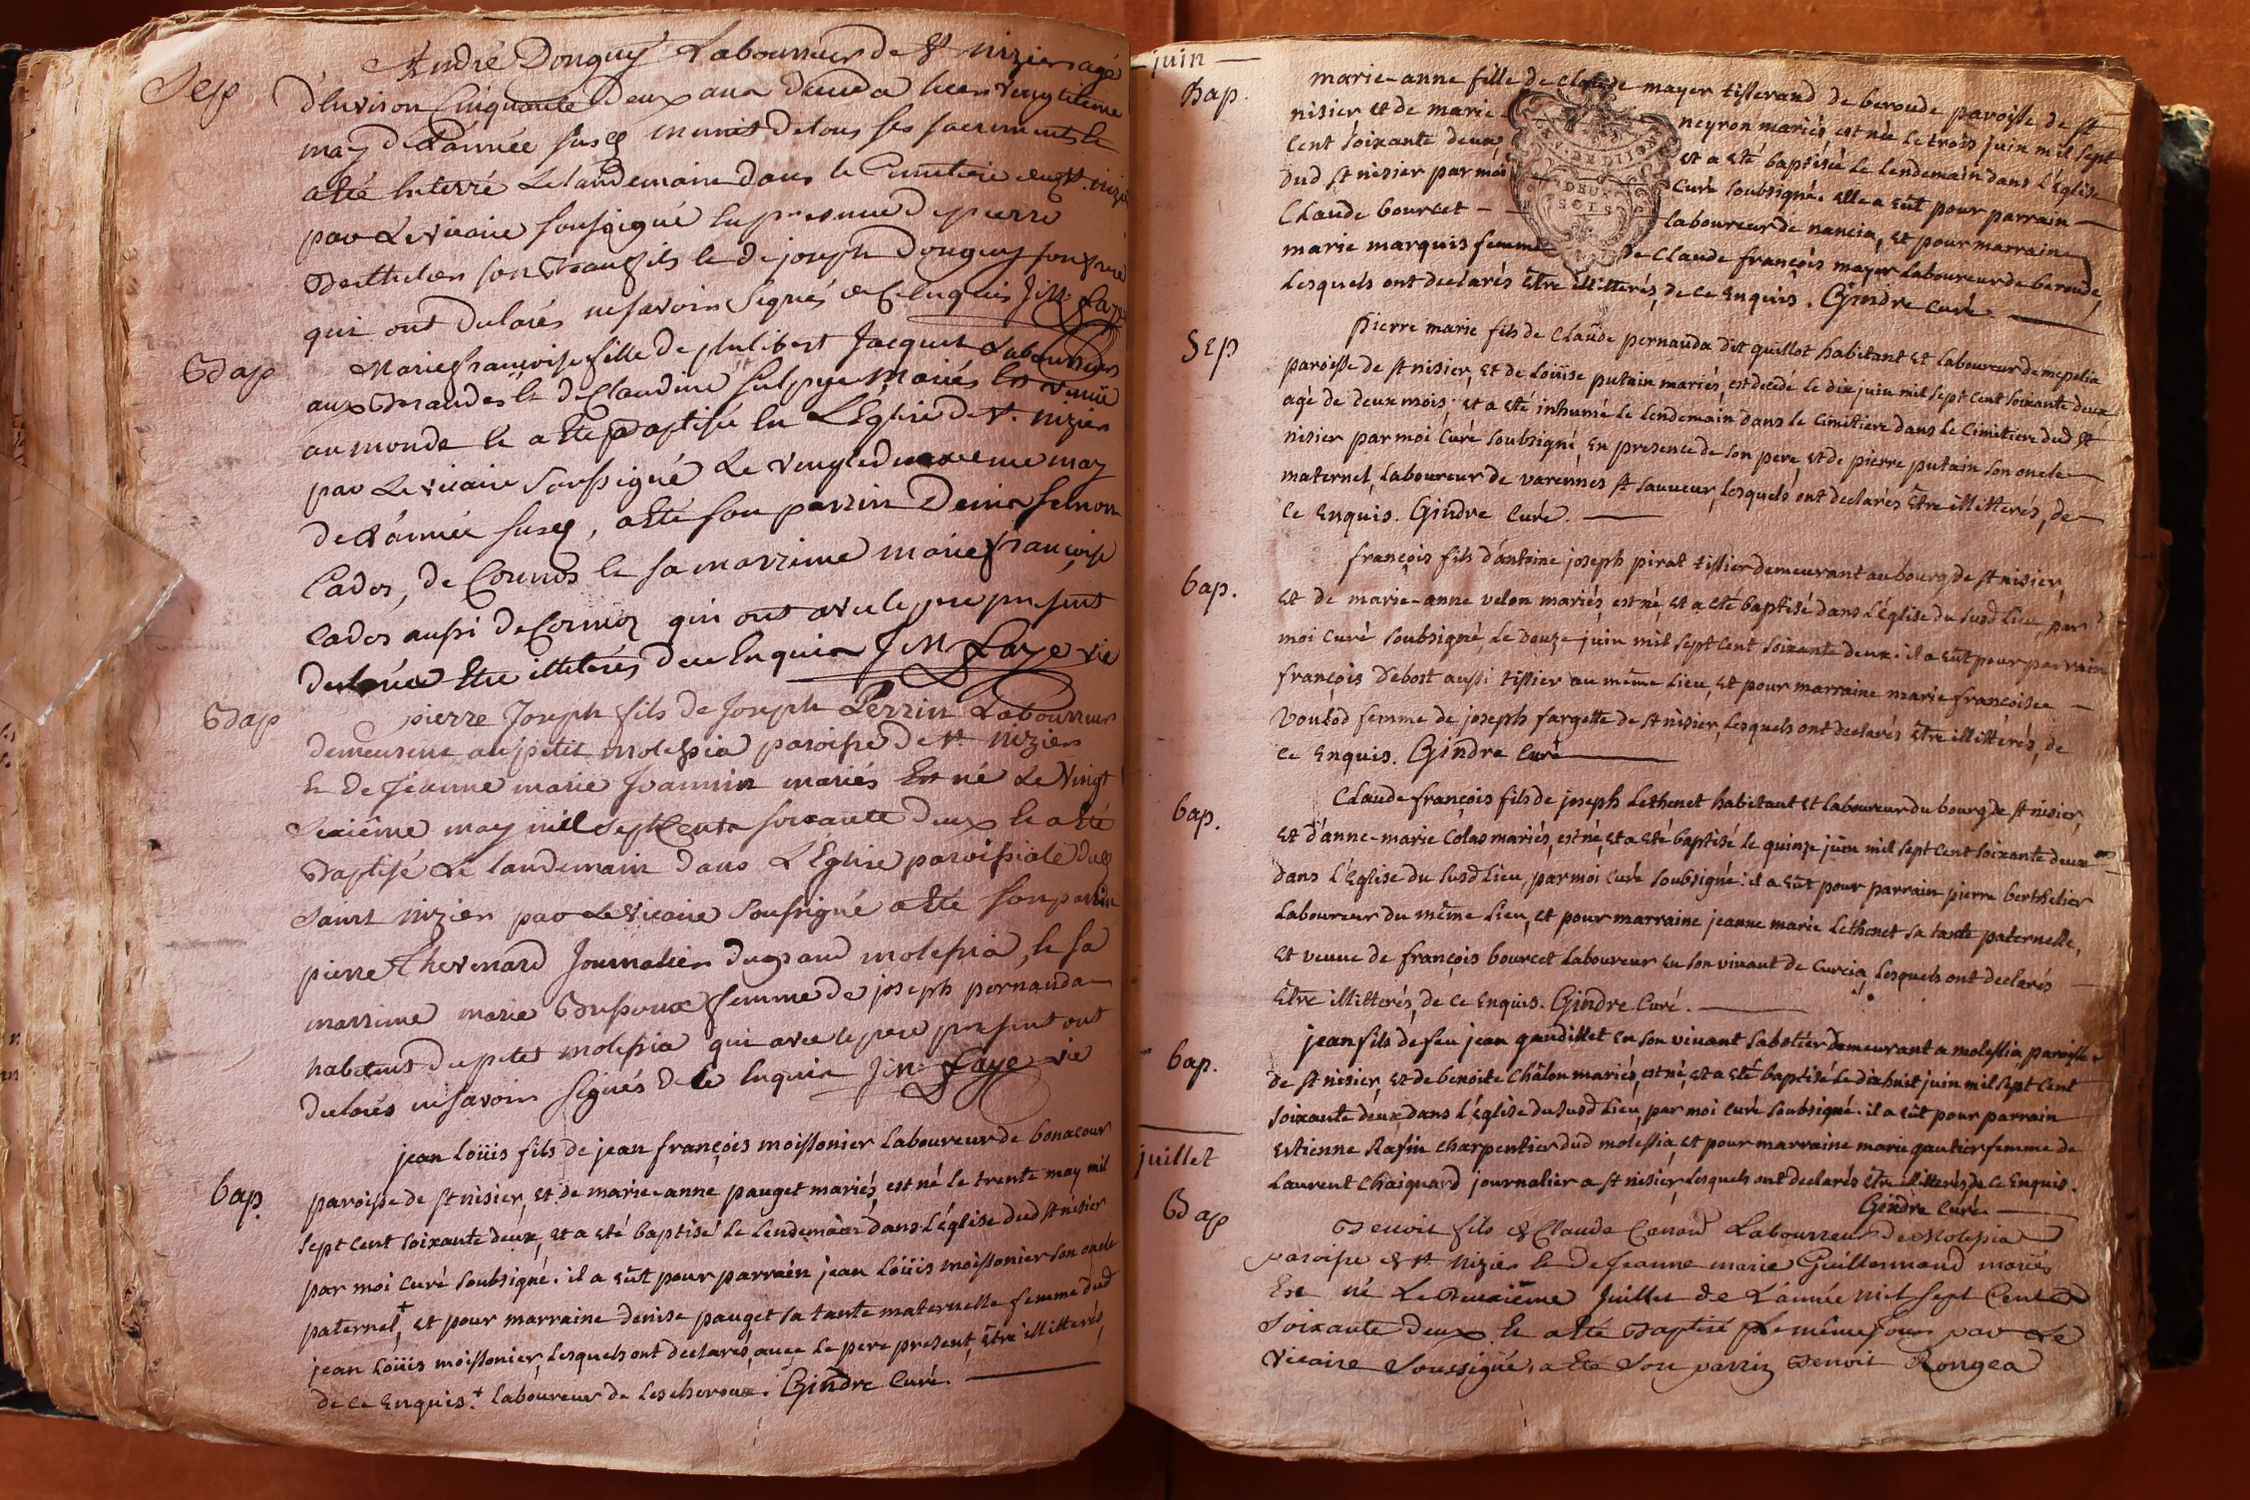 Sep
André Donguy Laboureur de St nizier agé
d'Environ Cinquante deux ans décéda hier vingtième
may de L'année susd munit de tous ses sacrements Et
a été Enterré Le landemain dans le Cimetiere dud St. nizier
par Le vicaire soussigné En presence de pierre
Berthelier son Beaufils Et de joseph Donguy son frere
qui ont declarés ne savoir signés de Ce Enquis J:M: Faye
Bap
Marie françoise fille de philibert Jacquet Laboureur
aux Et de Claudine mariés Est venuë
au monde Et a été Baptisée En L'Eglise de St. nizier
par Le vicaire soussigné Le vingtedeuxieme may
de L'année susd, a été son parrin Denis
Cados, de Cormos Et sa marrinne marie françoise
Cados aussi de Cormoz qui ont avec le pere present
declarés Etre illiterés de ce Enquis J M Faye vic
Bap
pierre Joseph fils de Joseph Perrin Laboureur
demeurent au petit molessia paroisse de St. nizier
Et de Jeanne marie Joannin mariés Est né Le vingt
sixième may mill sept Cents soixante deux Et a été
Baptisé Le landemain dans L'Eglise paroissiale dud
saint nizier par Le Vicaire soussigné a été son parrin
pierre Thevenard Journalier du grand molessia, Et sa
marrinne marie femme de joseph pernauda
habitant du petit molessia qui avec le pere present ont
declarés ne savoir signés de Ce Enquis J:M: Faye vic
bap.
jean Loüis fils de jean françois moissonier Laboureur de bonacour
paroisse de st nisier, et de marie-anne pauget mariés, est né le trente may mil
sept cent soixante deux, et a eté baptisé le lendemain dans L'église dud st nisier
par moi curé soubsigné. il a eût pour parrain jean Loüis moissonier son oncle
paternel,+ et pour marraine denise pauget sa tante maternelle femme dud
jean Loüis moissonier, Lesquels ont declarés, avec le pere present, être illitterés,
de ce enquis.+ Laboureur de Lescheroux. Gindre Curé.
juin
Bap.
marie-anne fille de claude mayer tisserand de beroude paroisse de st
nisier et de marie neyron mariés, est née le trois juin mil sept
cent soixante deux, et a eté baptisée le lendemain dans L'église
dud st nisier par moi curé soubsigné. elle a eût pour parrain
Claude bourcet laboureur de nancia, et pour marraine
marie marquis femme de Claude françois mayer Laboureur de beroude,
Lesquels ont declarés être illitterés, de ce enquis. Gindre curé.
DEUX
SOLS
Sep
pierre marie fils de Claude pernauda dit quillot habitant et laboureur de mepelia
paroisse de st nisier, et de Loüise putain mariés, est decédé le dix juin mil sept cent soixante deux
agé de deux mois; et a eté inhumé le lendemain dans le cimitiere dans le cimitiere dud st
nisier par moi curé soubsigné, en presence de son pere, et de pierre putain son oncle
maternel, Laboureur de varennes st sauveur, Lesquels ont declarés être illitterés, de
ce enquis. Gindre curé.
bap.
françois fils d'antoine joseph pirat tissier demeurant au bourg de st nisier,
et de marie-anne velon mariés, est né, et a eté baptisé dans L'église du susd Lieu, par
moi curé soubsigné, le douze juin mil sept cent soixante deux. il a eût pour parrain
françois debost aussi tissier au même Lieu et pour marraine marie francoise
voulod femme de joseph fargette de st nisier, Lesquels ont declarés être illitterés, de
ce enquis. Gindre Curé
bap.
Claude françois fils de joseph Lethenet habitant et laboureur du bourg de st nisier,
et d'anne-marie Colas mariés, est né, et a eté baptisé le quinze juin mil sept cent soixante deux
dans L'église du susd Lieu, par moi curé soubsigné: il a eût pour parrain pierre berthelier
Laboureur du même Lieu, et pour marraine jeanne marie Lethenet sa tante paternelle,
et veuve de françois bourcet Laboureur en son vivant de curcia, Lesquels ont declarés
être illitterés, de ce enquis. Gindre Curé.
bap.
jean fils de feu jean gaudillet en son vivant sabotier demeurant a molessia paroisse
de st nisier, et de benoite châlon mariés, est né, et a eté baptisé le dixhuit juin mil sept cent
soixante deux, dans L'église du susd Lieu, par moi curé soubsigné. il a eût pour parrain
estienne Rafin charpentier dud molessia, et pour marraine marie gautier femme de
Laurent chaignard journalier a st nisier, Lesquels ont declarés être illitterés, de ce enquis.
Gindre Curé
juillet
Bap
Benoit fils de Claude Canard Laboureur de Molessia
paroisse de st Nizier Et de Jeanne marie Guillermand mariés
Est né Le deuxième Juillet de L'année mil sept Cents
soixante deux Et a été Baptisé Le même jour par Le
vicaire Soussigné, a été son parrin Benoit Rongea